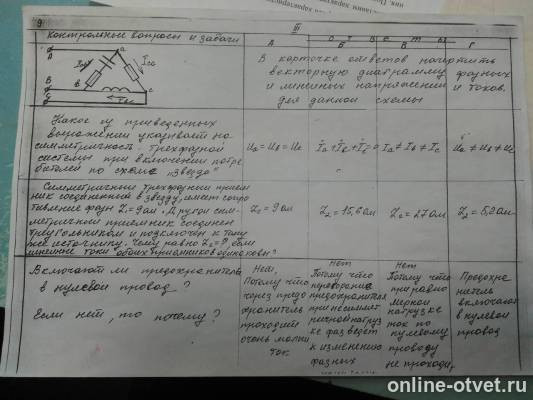 9
III
Контрольные вопросы и задачи
О т в е т ы
А Б В Г
A
B
C
a
b
c
В карточке ответов начертить
векторную диаграмму фазных
и линейных напряжений и токов
для данной схемы
Какое из приведенных
выражений указывает на
симметричность трехфазной
системы при включении потре-
бителей по схеме "звезда"
Ua=Ub=Uc
İa+İb+İc=0
Ia≠Ib≠Ic
Ua≠Ub≠Uc
Симметричный трехфазный прием
ник соединенный в звезду, имеет сопро
тивление фазы Z1=9 ом. Другой сим-
метричный приемник соединен
треугольником и подключен к тому
же источнику. Чему равно Z2=? если
линейные токи обоих приемников одинаковы?
Z2=9 ом
Z2=15,6 ом
Z2=27 ом
Z2=5,2 ом
Включают ли предохранитель
в нулевой провод?
Если нет, то почему?
Нет,
Потому что
через предо
хранитель
проходит
очень малый
ток.
Нет
Потому что
перегорание
предохранителя
при несиммет
ричной нагруз
ке фаз ведет
к изменению
фазных
Нет
Потому что
при равно
мерной
нагрузке
ток по
нулевому
проводу
не проходит
Предохра
нитель
включают
в нулевой
провод
online-otvet.ru